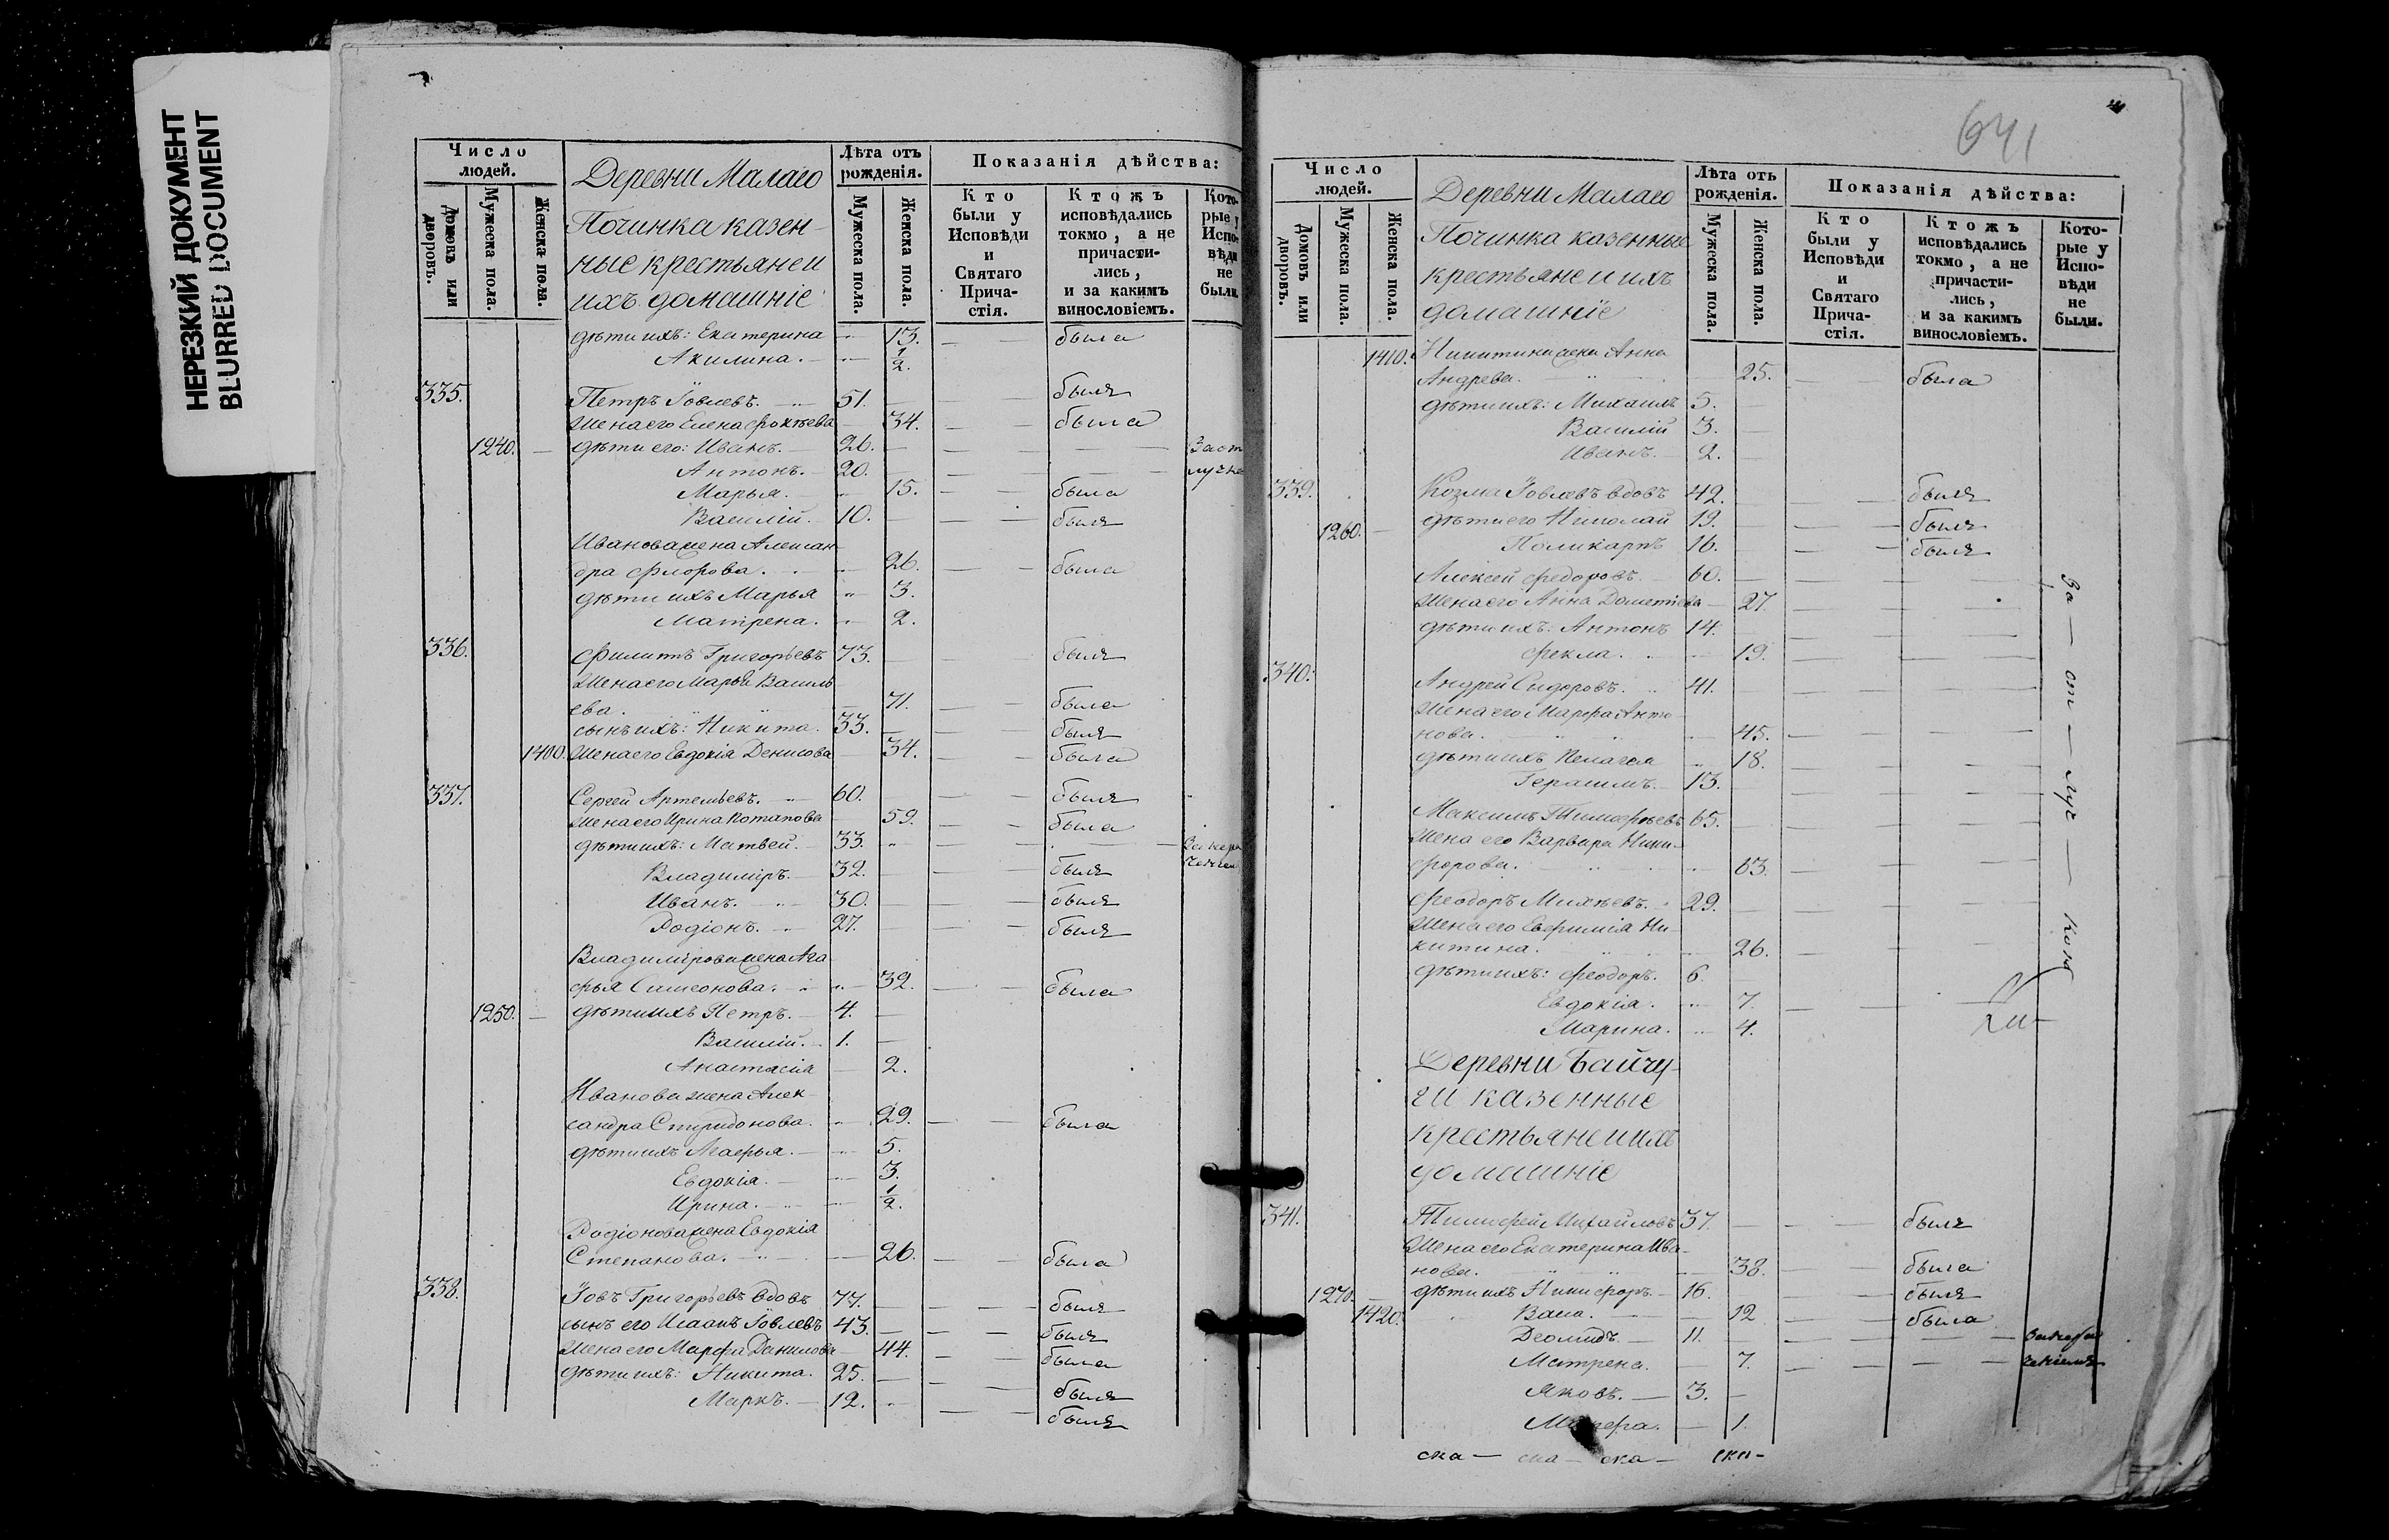 НЕРЕЗКИЙ ДОКУМЕНТ
BLURRED DOCUMENT
Число людей.
Домовъ или дворовъ.
Мужеска пола.
Женска пола.
Деревни Малаго
Починка казен-
ные крестьяне и
ихъ домашніе
Лѣта отъ рожденія.
Мужеска пола.
Женска пола.
Показанія дѣйства:
Кто были у Исповѣди и Святаго Прича-стія.
Ктожъ исповѣдались токмо, а не причасти-лись, и за какимъ винословіемъ.
Кото-рые у Испо-вѣди не были.
дѣти ихъ: Екатерина 13. была
Акилина. 1/2.
335. Петръ Іовлевъ. 51. былъ
Жена его Елена Фоктева 34. была
1240. дѣти его: Иванъ. 26. За от
Антонъ. 20. луче
Марья. 15. была
Василій. 10. былъ
Иванова жена Алексан-
дра Флорова. 26. была
дѣти ихъ Марья 3.
Матрена. 2.
336. Филиппъ Григорьевъ 73. былъ
Жена его Марья Василь
ева. 71. была
сынъ ихъ: Никита. 33. былъ
1400. Жена его Евдокія Денисова 34. была
337. Сергей Артемьевъ. 60. былъ
Жена его Ирина Потапова 59. была
дѣти ихъ: Матвей. 33.
Владиміръ. 32. былъ
Иванъ. 30. былъ
Родіонъ. 27. былъ
Владимірова жена Ага
фья Самсонова. 32. была
1250. дѣти ихъ Петръ. 4.
Василій. 1.
Анастасія 2.
Иванова жена Алек-
сандра Спиридонова. 29. была
дѣти ихъ Агафья. 5.
Евдокія. 3.
Ирина. 1/2.
Родіонова жена Евдокія
Степанова. 26. была
338. Іовъ Григорьевъ вдовъ 77. былъ
сынъ его Исаакъ Іовлевъ 43. былъ
Жена его Марфа Данилова 44. была
дѣти ихъ: Никита. 25. былъ
Маркъ. 12. былъ
641
Число людей.
Домовъ или дворовъ.
Мужеска пола.
Женска пола.
Деревни Малаго
Починка казенные
крестьяне и ихъ
домашніе
Лѣта отъ рожденія.
Мужеска пола.
Женска пола.
Показанія дѣйства:
Кто были у Исповѣди и Святаго Прича-стія.
Ктожъ исповѣдались токмо, а не причасти-лись, и за какимъ винословіемъ.
Кото-рые у Испо-вѣди не были.
1410. Никитина жена Анна
Андреева. 25. была
дѣти ихъ: Михаилъ 5.
Василій 3.
Иванъ. 2.
339. Козма Іовлевъ вдовъ 42. былъ
дѣти его Николай 19. былъ
1260. Поликарпъ 16. былъ
Алексей Федоровъ. 60.
Жена его Анна Дометіева 27.
дѣти ихъ: Антонъ 14.
Фекла. 19.
340. Андрей Сидоровъ. 41.
Жена его Марфа Анто-
нова. 45.
дѣти ихъ Пелагея 18.
Герасимъ. 13.
Максимъ Тимофеевъ 65.
Жена его Варвара Ники-
форова. 63.
Феодоръ Михеевъ. 29.
Жена его Евфимія Ни-
китина. 26.
дѣти ихъ: Феодоръ. 6.
Евдокія. 7.
Марина. 4.
За — от — луч — кою
Деревни Байчу-
ги казенные
крестьяне и ихъ
домашніе
341. Тимофей Михайловъ 37. былъ
Жена его Екатерина Ива-
нова. 38. была
1270. дѣти ихъ Никифоръ. 16. былъ
1420. Васа. 12 была
Деомидъ. 11.
Матрена. 7.
Яковъ. 3.
1.
ска — ска — ска — ска —